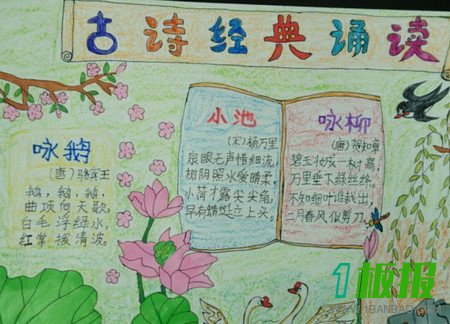 古诗经典诵读
咏鹅
(唐)骆宾王
鹅,鹅,鹅,
曲项向天歌,
白毛浮绿水,
红掌拨清波。
小池
(宋)杨万里
泉眼无声惜细流,
树阴照水爱晴柔,
小荷才露尖尖角,
早有蜻蜓立上头。
咏柳
(唐)贺知章
碧玉妆成一树高,
万里垂下绿丝绦。
不知细叶谁裁出,
二月春风似剪刀。
1板报